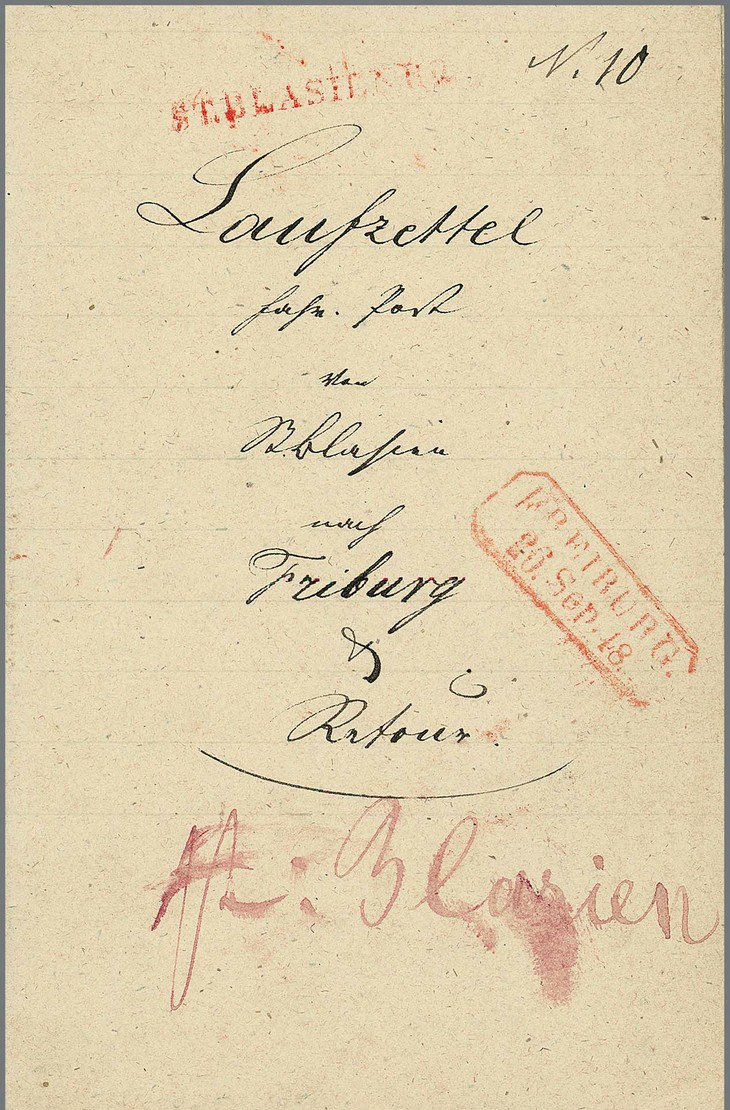 N. 10
ST.BLASIEN R2
Laufzettel
fahr. Post
von
St.Blasien
nach
Friburg
&
Retour.
FREIBURG.
26. Sep. 18.
St: Blasien